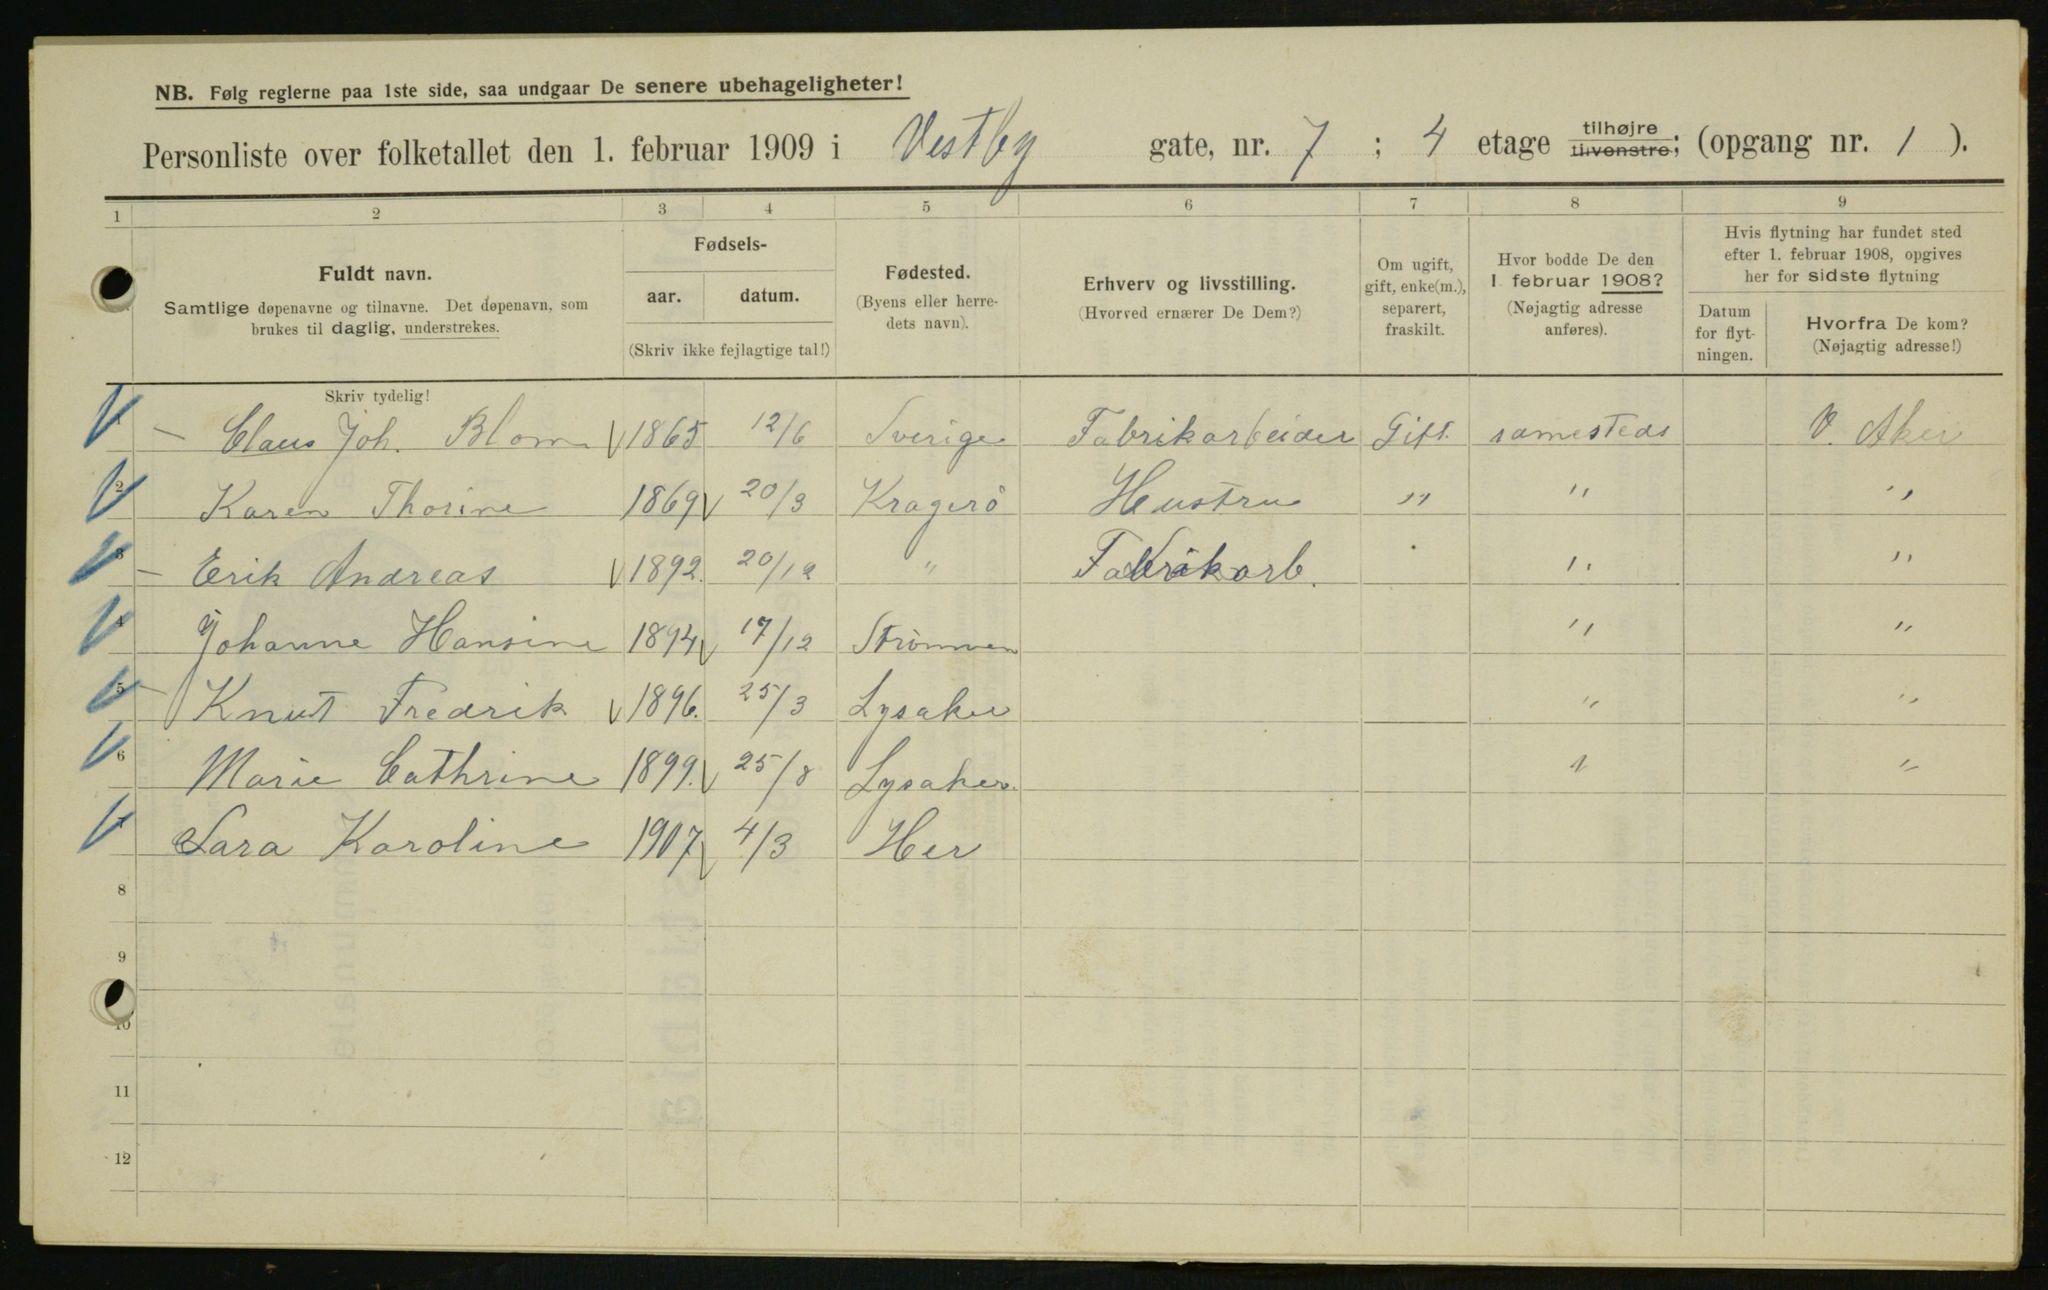 NB. Følg reglerne paa 1ste side, saa undgaar De senere ubehageligheter!
Personliste over folketallet den 1. februar 1909 i Vestby gate, nr. 7 ; 4 etage tilhøjre tilvenstre; (opgang nr. 1 ).
1 2 3 4 5 6 7 8 9
Fuldt navn.
Samtlige døpenavne og tilnavne. Det døpenavn, som
brukes til daglig, understrekes.
Fødsels-
aar. datum.
(Skriv ikke fejlagtige tal!)
Fødested.
(Byens eller herre-
dets navn).
Erhverv og livsstilling.
(Hvorved ernærer De Dem?)
Om ugift,
gift, enke(m.),
separert,
fraskilt.
Hvor bodde De den
1 februar 1908?
(Nøjagtig adresse
anføres).
Hvis flytning har fundet sted
efter 1. februar 1908, opgives
her for sidste flytning
Datum
for flyt-
ningen.
Hvorfra De kom?
(Nøjagtig adresse!)
Skriv tydelig!
Claus Joh. Blom 1865 12/6 Sverige Fabrikarbeider Gift. samesteds V. Aker
2 Karen Thorine 1869 20/3 Kragerö Hustru " " "
3 Erik Andreas 1892. 20/12 " Fabrikarb. " "
4 Johanne Hansine 1894 17/12 Strømmen " "
5 Knut Fredrik 1896. 25/3 Lysaker " "
6 Marie Cathrine 1899. 25/8 Lysaker. " "
7 Sara Karoline 1907 4/3 Her
8
9
10
11
12